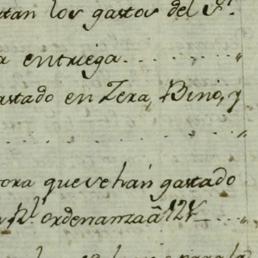 tan los gastos del S.r
a entriega
astado en Zera, Bino, y
ora que se han gastado
Rl ordenanza â 12 V